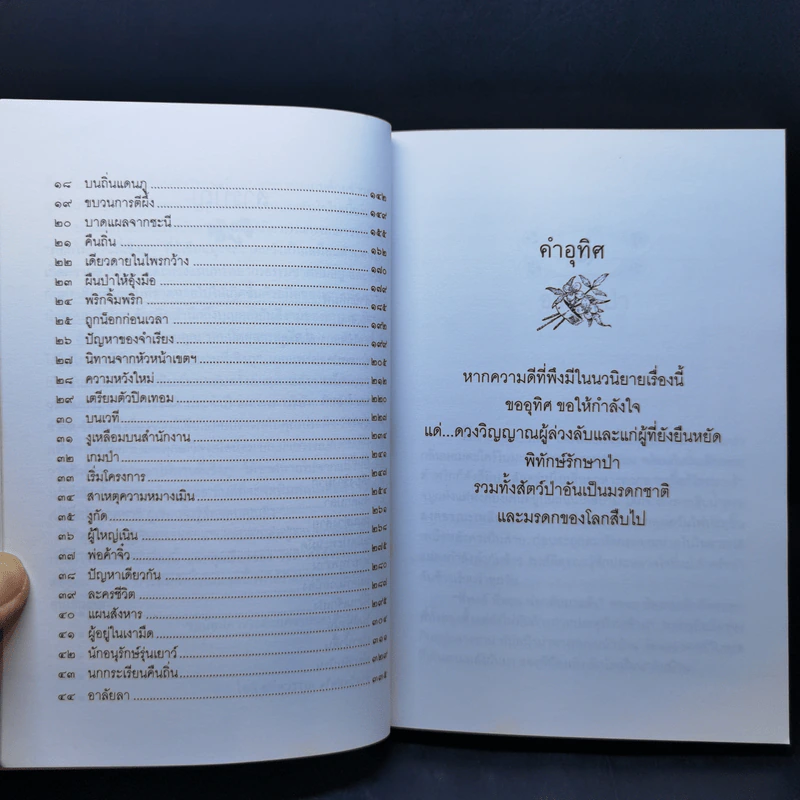 ๑๘ บนถิ่นแดนภู ๑๔๒
๑๙ ขบวนการตีผึ้ง ๑๔๙
๒๐ บาดแผลจากชะนี ๑๕๕
๒๑ คืนถิ่น ๑๖๒
๒๒ เดียวดายในไพรกว้าง ๑๗๐
๒๓ ผืนป่าให้อุ้งมือ ๑๗๙
๒๔ พริกจิ้มพริก ๑๘๕
๒๕ ถูกน็อกก่อนเวลา ๑๙๒
๒๖ ปัญหาของจำเรียง ๑๙๙
๒๗ นิทานจากหัวหน้าเขตฯ ๒๐๕
๒๘ ความหวังใหม่ ๒๑๒
๒๙ เตรียมตัวปิดเทอม ๒๒๐
๓๐ บนเวที ๒๒๘
๓๑ งูเหลือมบนสำนักงาน ๒๓๔
๓๒ เกมป่า ๒๔๐
๓๓ เริ่มโครงการ ๒๔๘
๓๔ สาเหตุความหมางเมิน ๒๕๔
๓๕ งูกัด ๒๖๑
๓๖ ผู้ใหญ่เนิน ๒๖๘
๓๗ พ่อค้าจิ๋ว ๒๗๕
๓๘ ปัญหาเดียวกัน ๒๘๐
๓๙ ละครชีวิต ๒๘๗
๔๐ แผนสังหาร ๒๙๕
๔๑ ผู้อยู่ในเงามืด
๔๒ นักอนุรักษ์รุ่นเยาว์
๔๓ นกกระเรียนคืนถิ่น
๔๔ อาลัยลา
คำอุทิศ
หากความดีที่พึงมีในนวนิยายเรื่องนี้
ขออุทิศ ขอให้กำลังใจ
แด่...ดวงวิญญาณผู้ล่วงลับและแก่ผู้ที่ยังยืนหยัด
พิทักษ์รักษาป่า
รวมทั้งสัตว์ป่าอันเป็นมรดกชาติ
และมรดกของโลกสืบไป